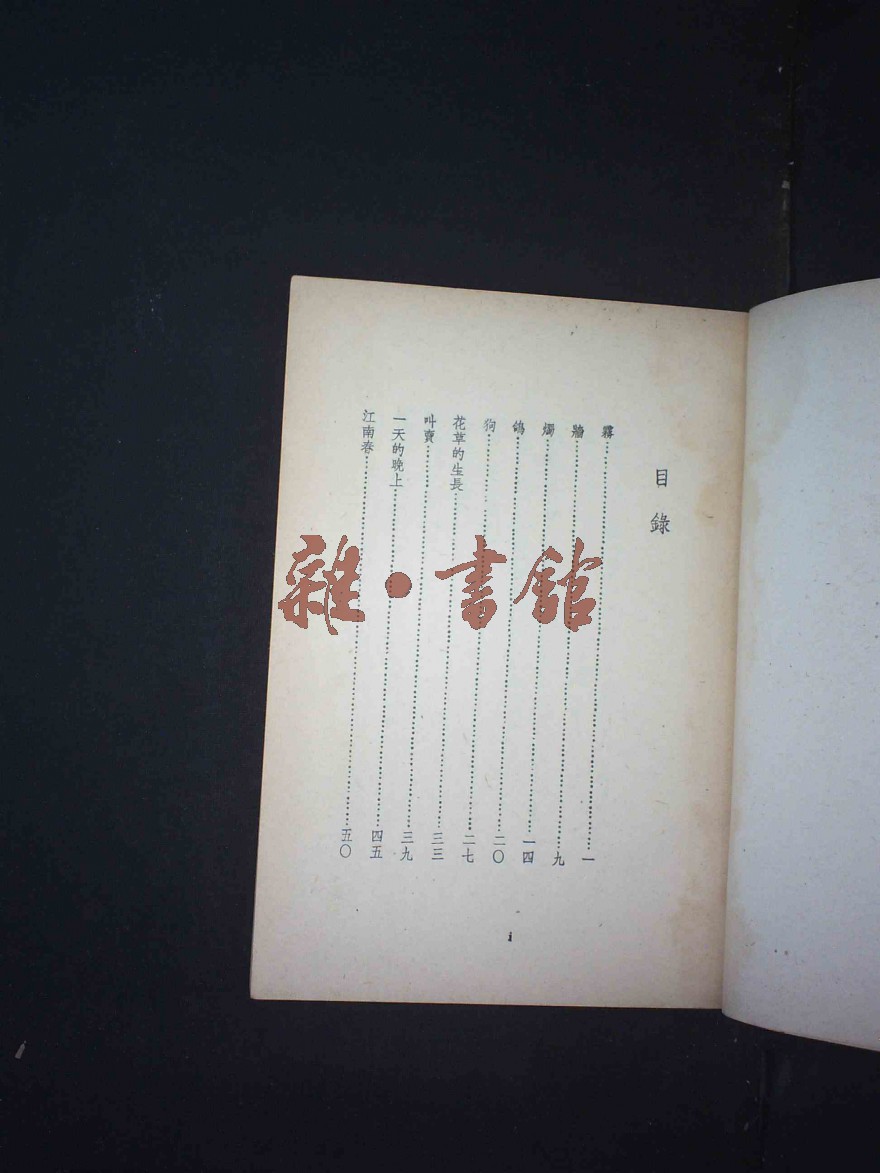 目錄
霧………一
牆………九
燭………一四
鴿………二〇
狗………二七
花草的生長………三三
叫賣………三九
一天的晚上………四五
江南春………五〇
i
雜·書館